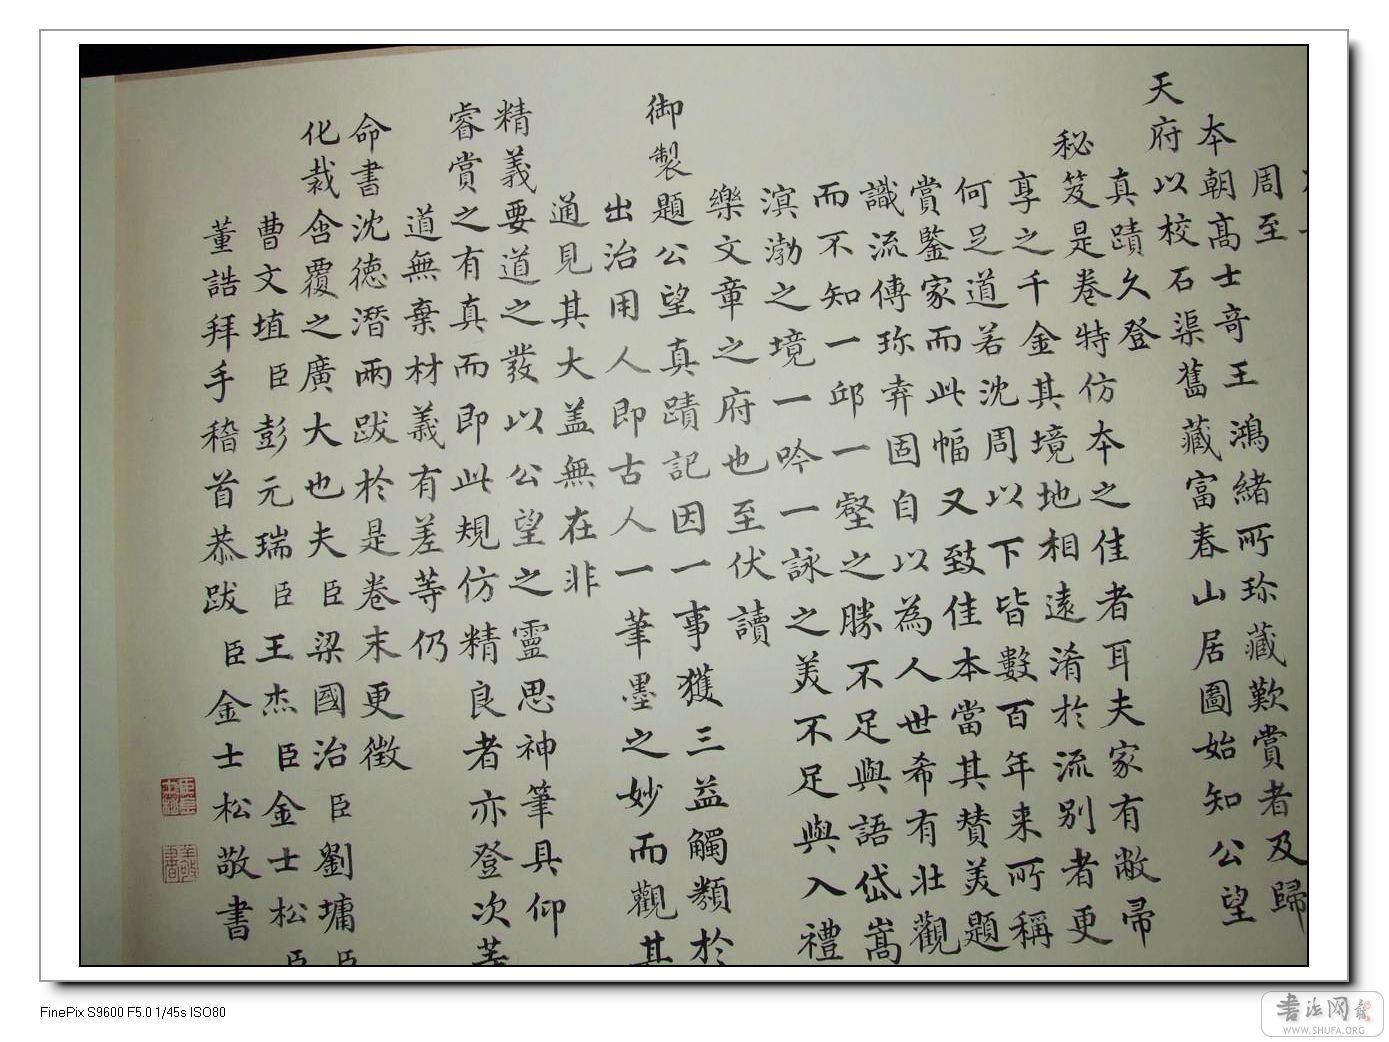 周至
本朝高士奇王鴻緒所珍藏歎賞者及歸
天府以校石渠舊藏富春山居圖始知公望
真蹟久登
秘笈是卷特仿本之佳者耳夫家有敝帚
享之千金其境地相遠淆於流別者更
何足道若沈周以下皆數百年来所稱
賞鑒家而此幅又致佳本當其賛美題
識流傳珎弆固自以為人世希有壯觀
而不知一邱一壑之勝不足與語岱嵩
溟渤之境一吟一詠之美不足與入禮
樂文章之府也至伏讀
御製題公望真蹟記因一事獲三益觸類於
出治用人即古人一筆墨之妙而觀其
通見其大盖無在非
精義要道之發以公望之靈思神筆具仰
睿賞之有真而即此規仿精良者亦登次苐
道無棄材義有差等仍
命書沈德潛兩跋於是卷末更徵
化裁含覆之廣大也夫臣梁國治臣劉墉臣
曹文埴臣彭元瑞臣王杰臣金士松臣
董誥拜手稽首恭跋臣金士松敬書
FinePix S9600 F5.0 1/45s ISO80
书法网
WWW.SHUFA.ORG